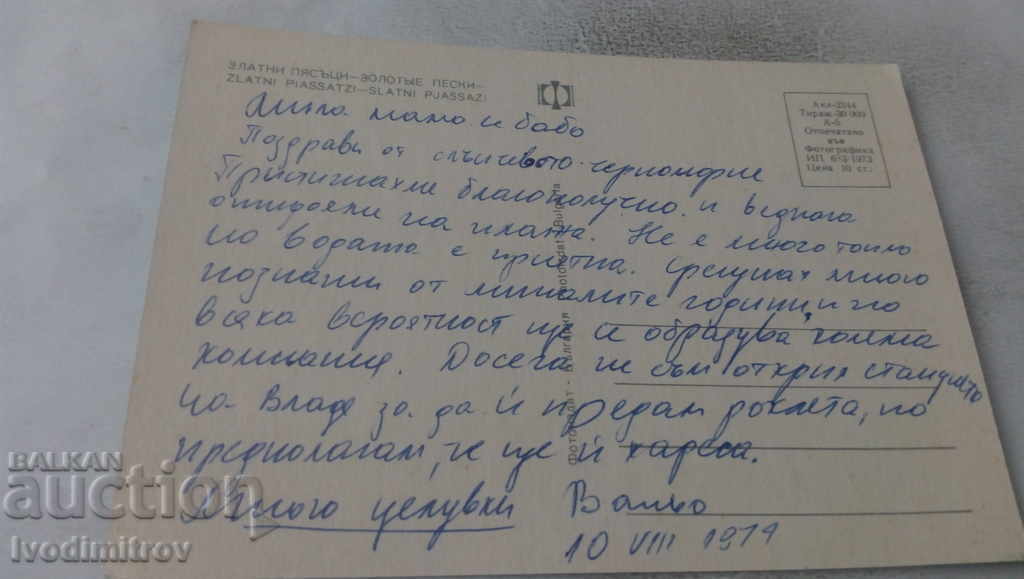 ЗЛАТНИ ПЯСЪЦИ—ЗОЛОТЫЕ ПЕСКИ—
ZLATNI PIASSATZI—SLATNI PJASSAZI
Акл-2014
Тираж-30 000
К-5
Отпечатано
във
Фотографика
ИП 653-1973
Цена 10 ст.
Мила мамо и бабо
Поздрави от слънчевото черноморие
Пристигнахме благополучно и веднага
отидохме на плажа. Не е много топло
но водата е приятна. Срещнах много
познати от миналите години, и по
всяка вероятност ще се образува голяма
компания. Досега не съм открил
на Влад за да ѝ предам, но
предполагам, че ще ѝ хареса.
Много целувки Вальо
10 VIII 1974
Фотоиздат - България
BALKAN
auction
Ivodimitrov